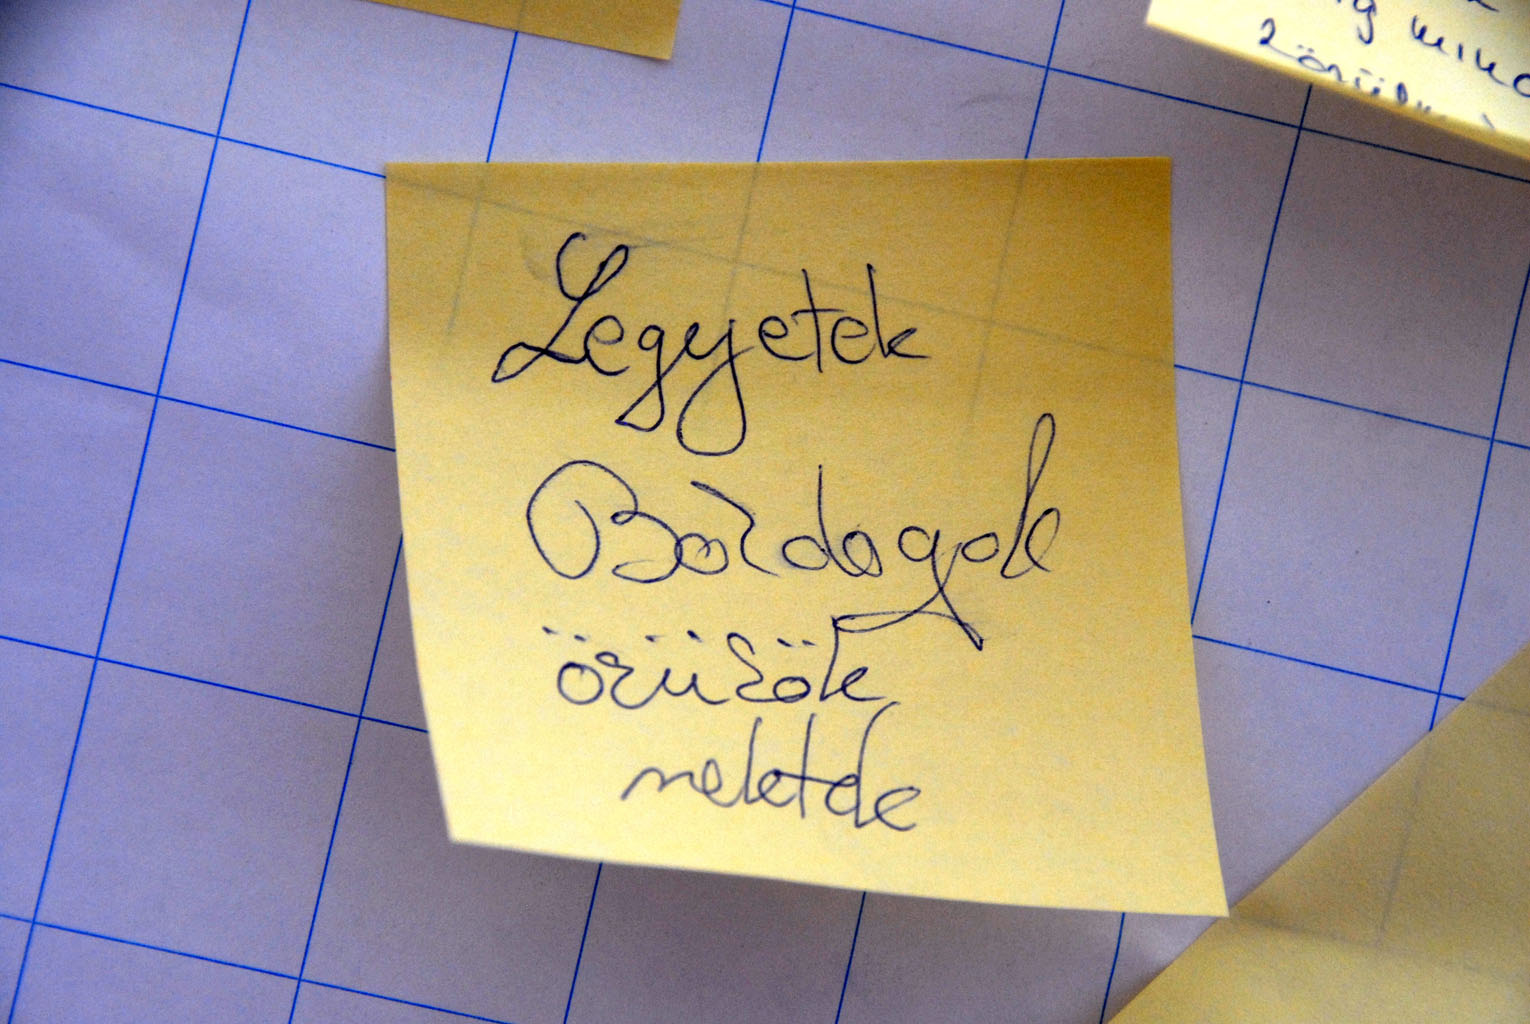 ig mind
Legyetek
Boldogok
örülök
nektek